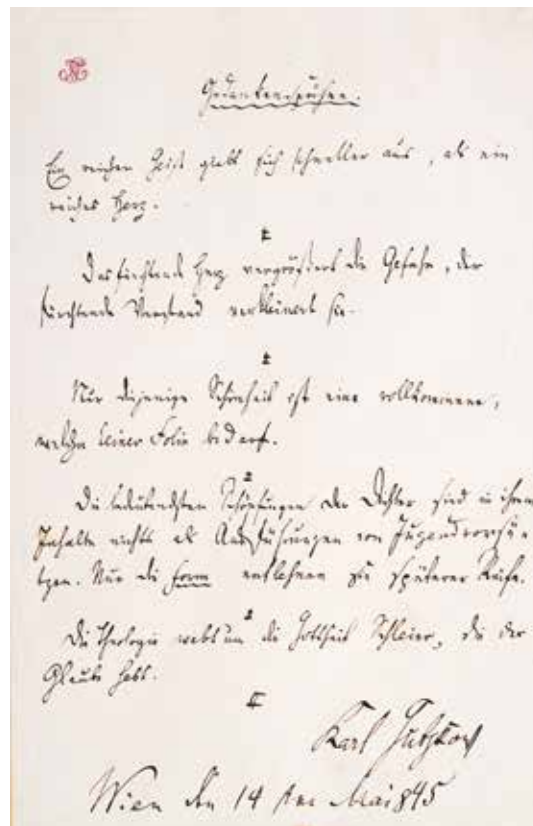 Gedankenspäne.
Ein reicher Geist giebt sich schneller aus, als ein
reiches Herz.
Das fürchtende Herz vergrößert die Gefahr, der
fürchtende Verstand verkleinert sie.
Nur diejenige Schönheit ist eine vollkommene,
welche keiner Folie bedarf.
Die bedeutendsten Schöpfungen der Dichter sind in ihrem
Inhalte nichts als Ausführungen von Jugend
Nur die Form entlehnen sie späterer Reife.
Die Theologie webt um die Gottheit Schleier, die der
Glaube hebt.
Karl Gutzkow
Wien den 14 Mai 845